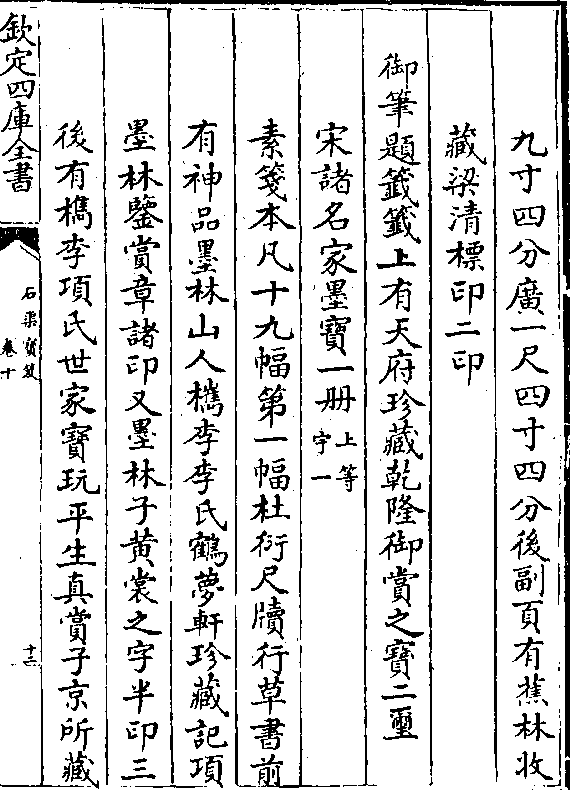 九寸四分廣一尺四寸四分後副頁有蕉林收
藏梁清標印二印
御筆題籤籤上有天府珍藏乾隆御賞之寶二璽
宋諸名家墨寶一册上等
字一
素箋本凡十九幅第一幅杜衍尺牘行草書前
有神品墨林山人檇李李氏鶴夢軒珍藏記項
墨林鑒賞章諸印又墨林子黄裳之字半印三
後有檇李項氏世家寶玩平生真賞子京所藏
欽定四庫全書
石渠寶笈
卷十
十三